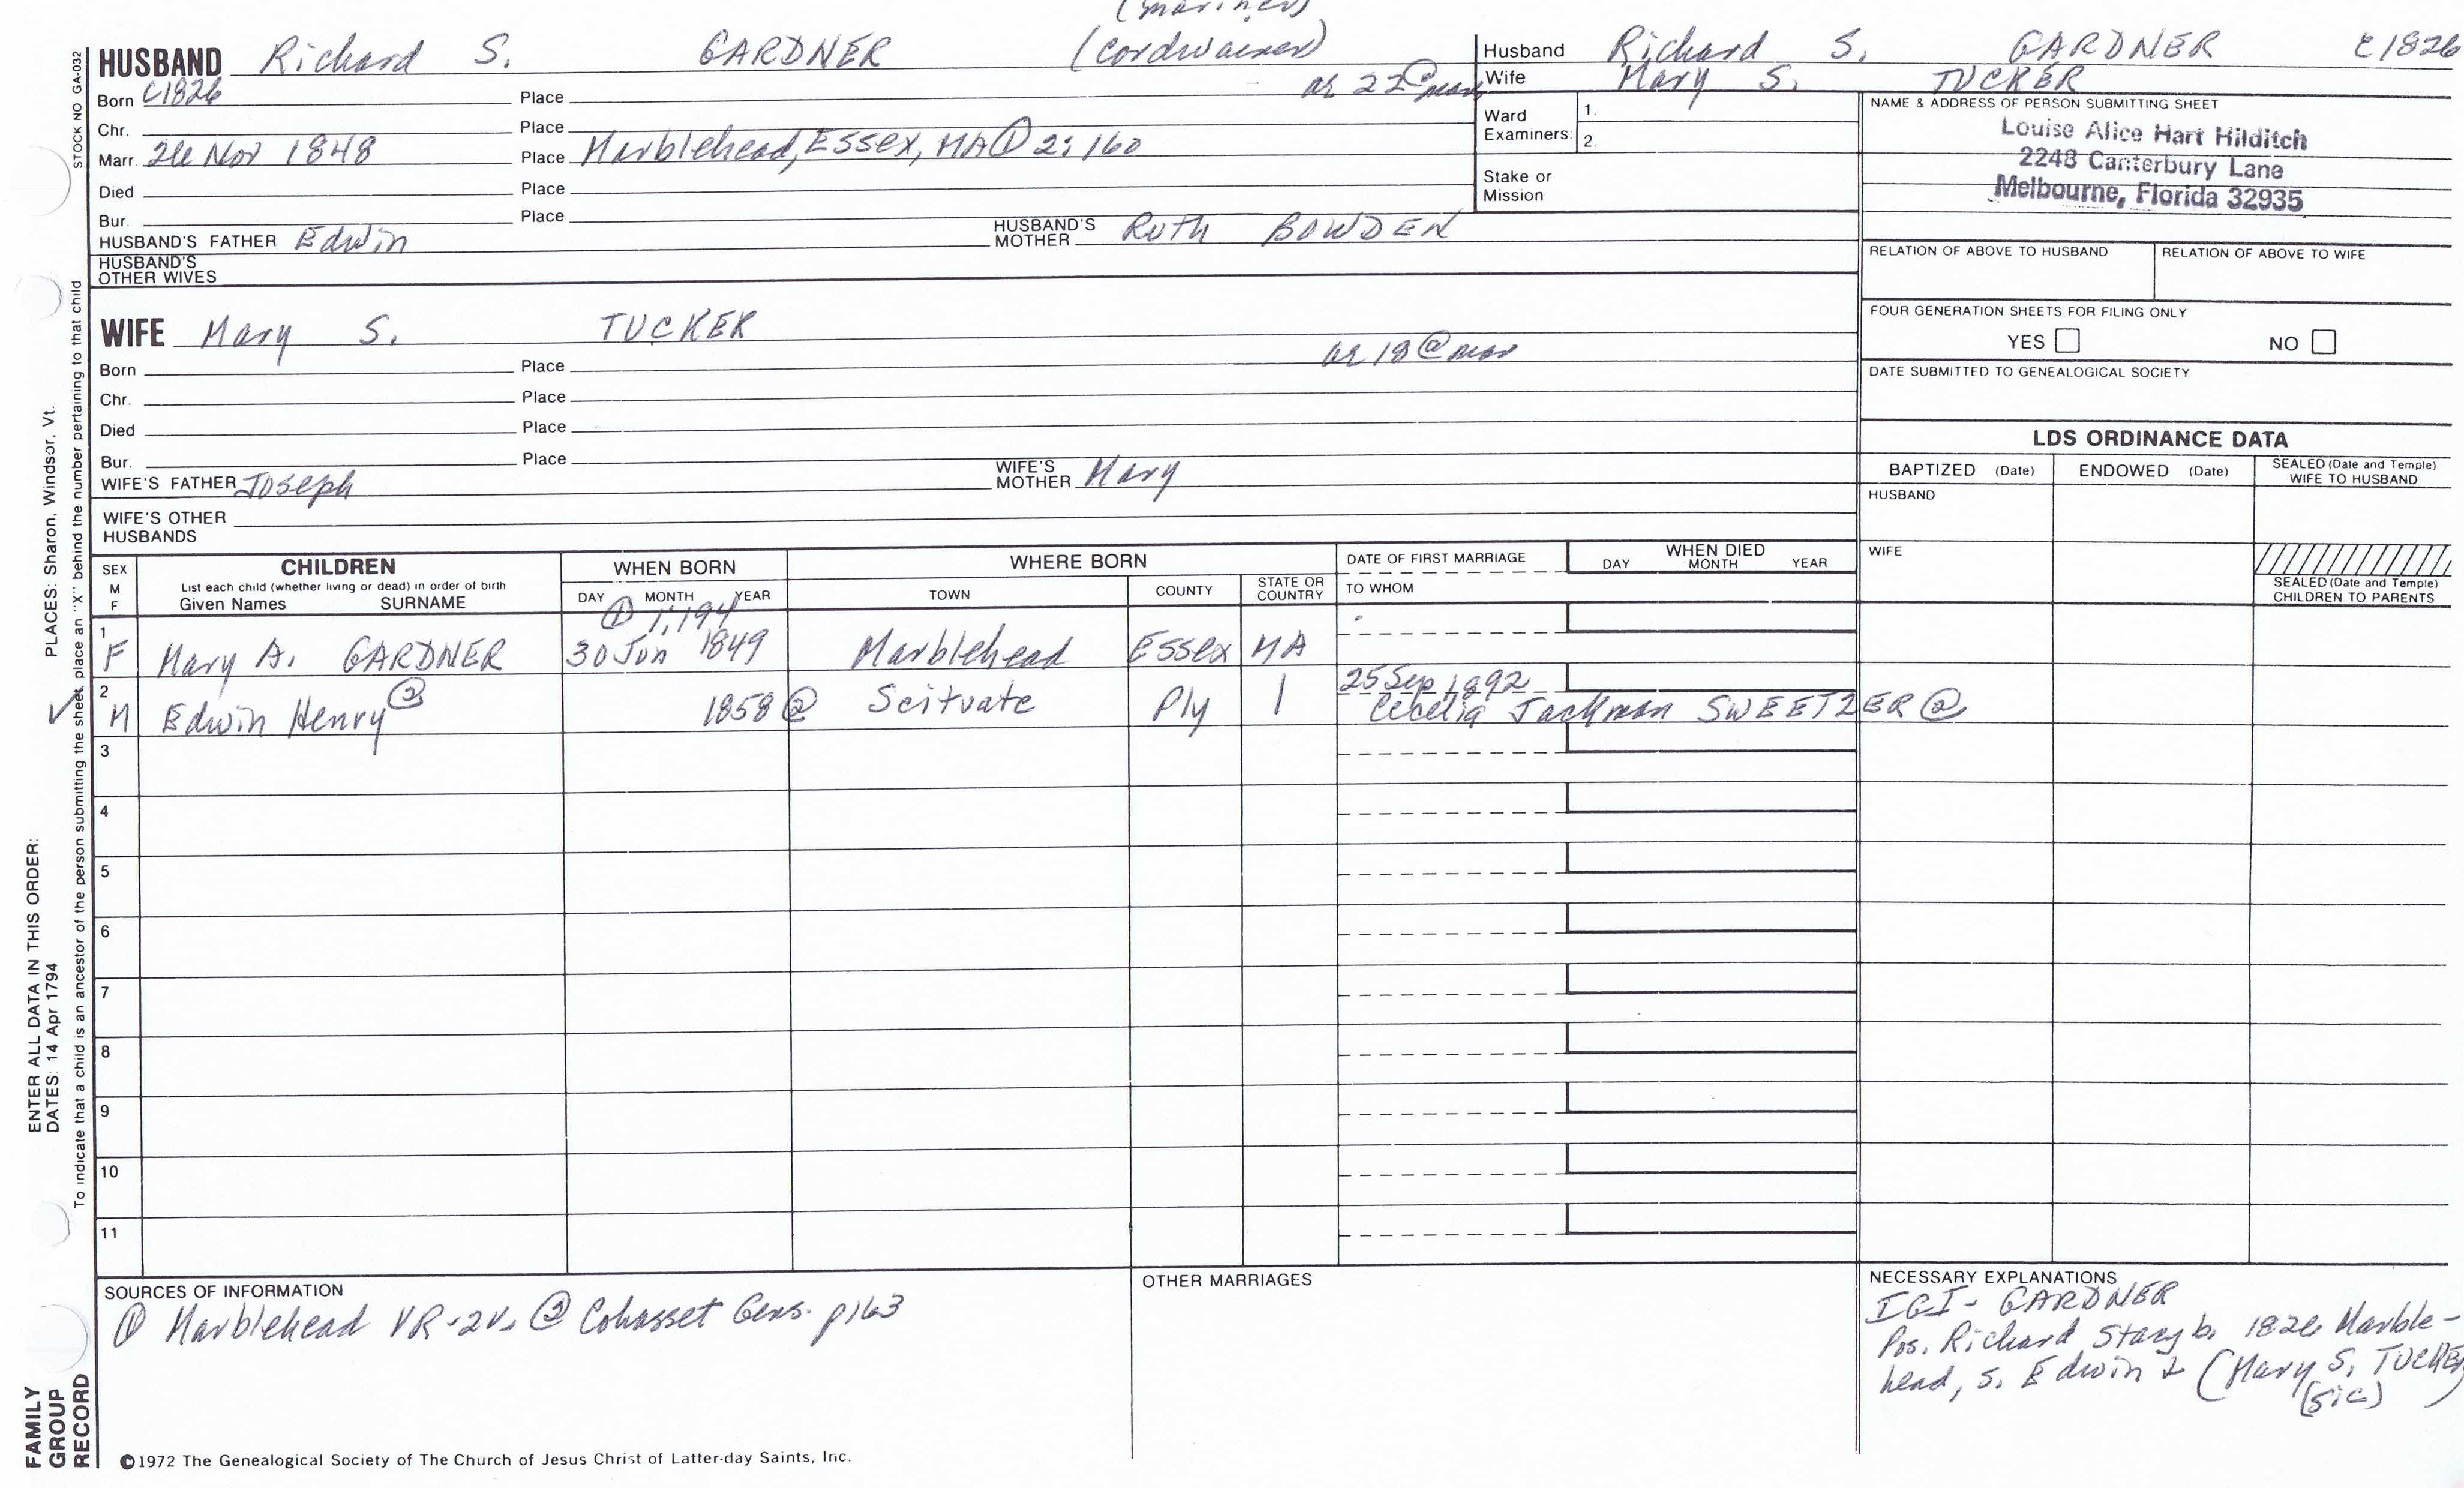 (mariner)
HUSBAND Richard S. GARDNER (cordwainer)
Born c1826 Place ae 22 @ mar
Chr. Place
Marr. 26 Nov 1848 Place Marblehead, Essex, MA ① 2:160
Died Place
Bur. Place
HUSBAND'S FATHER Edwin HUSBAND'S MOTHER Ruth BOWDEN
HUSBAND'S OTHER WIVES
Husband Richard S. GARDNER c1826
Wife Mary S. TUCKER
Ward Examiners: 1.
2.
Stake or Mission
NAME & ADDRESS OF PERSON SUBMITTING SHEET
Louise Alice Hart Hilditch
2248 Canterbury Lane
Melbourne, Florida 32935
RELATION OF ABOVE TO HUSBAND RELATION OF ABOVE TO WIFE
FOUR GENERATION SHEETS FOR FILING ONLY
YES NO
DATE SUBMITTED TO GENEALOGICAL SOCIETY
WIFE Mary S. TUCKER
Born Place ae 18 @ mar
Chr. Place
Died Place
Bur. Place
WIFE'S FATHER Joseph WIFE'S MOTHER Mary
WIFE'S OTHER HUSBANDS
LDS ORDINANCE DATA
BAPTIZED (Date) ENDOWED (Date) SEALED (Date and Temple) WIFE TO HUSBAND
HUSBAND
WIFE
SEALED (Date and Temple) CHILDREN TO PARENTS
SEX M F
CHILDREN
List each child (whether living or dead) in order of birth
Given Names SURNAME
WHEN BORN
DAY MONTH YEAR
WHERE BORN
TOWN COUNTY STATE OR COUNTRY
DATE OF FIRST MARRIAGE
TO WHOM
WHEN DIED
DAY MONTH YEAR
① 1:194
1 F Mary A. GARDNER 30 Jun 1849 Marblehead Essex MA
2 M Edwin Henry ② 1858 ② Scituate Ply | 25 Sep 1892
Cecelia Jackman SWEETZER ②
3
4
5
6
7
8
9
10
11
SOURCES OF INFORMATION
① Marblehead VR-2v. ② Cohasset Gens. p163
OTHER MARRIAGES
NECESSARY EXPLANATIONS
IGI - GARDNER
Pos. Richard Stacy b. 1826 Marble-
head, s. Edwin & (Mary S. TUCKER
(sic) )
©1972 The Genealogical Society of The Church of Jesus Christ of Latter-day Saints, Inc.
STOCK NO GA-032
To indicate that a child is an ancestor of the person submitting the sheet, place an "X" behind the number pertaining to that child.
PLACES: Sharon, Windsor, Vt.
ENTER ALL DATA IN THIS ORDER:
DATES: 14 Apr 1794
FAMILY
GROUP
RECORD